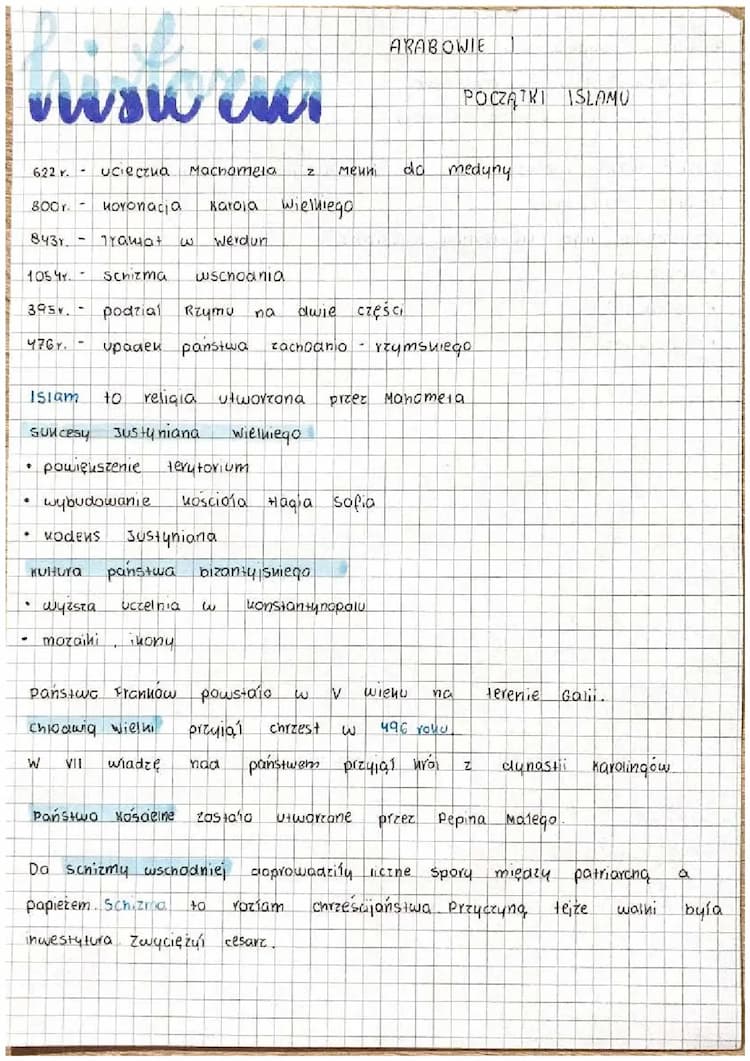 historia
ARABOWIE I
POCZĄTKI ISLAMU
622 r. - ucieczka Machometa z Mekki do medyny
800r. - koronacja Karola Wielkiego
843r. - Traktat w Werdun
1054r. - Schizma wschodnia
395r. - podział Rzymu na dwie części
476r. - upadek państwa zachodnio - rzymskiego
Islam to religia utworzona przez Mahometa
Sukcesy Justyniana Wielkiego
• powiększenie terytorium
• wybudowanie kościoła Hagia Sofia
• kodeks Justyniana
Kultura państwa bizantyjskiego
• wyższa uczelnia w konstantynopolu
• mozaiki, ikony
Państwo Franków powstało w V wieku na terenie Galii.
Chlodwig Wielki przyjął chrzest w 496 roku.
W VII władzę nad państwem przyjął król z dynastii Karolingów
Państwo Kościelne zostało utworzone przez Pepina Małego.
Do schizmy wschodniej doprowadziły liczne spory między patriarchą a
papieżem. Schizma to rozłam chrześcijaństwa. Przyczyną tejże walki była
inwestytura. Zwyciężył cesarz.